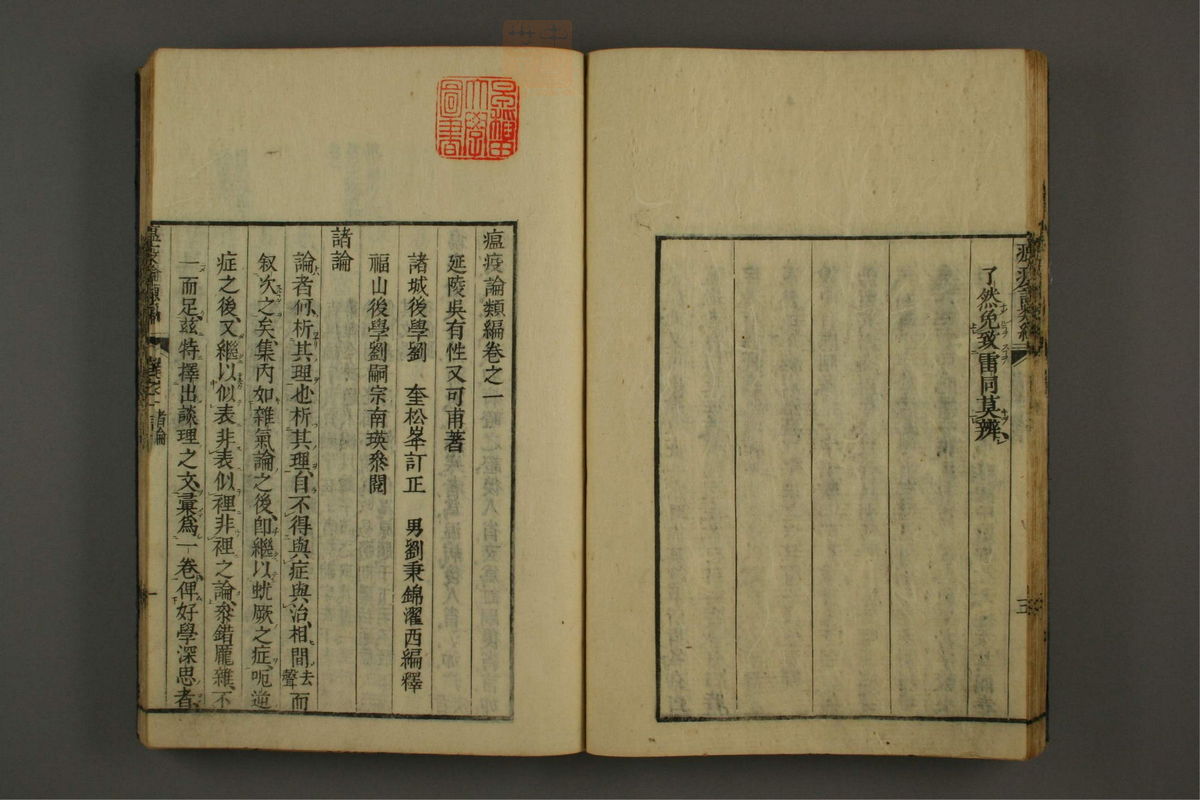 了然免致雷同莫辨
三
瘟疫論類編卷之一
延陵吳有性又可甫著
諸城後學劉 奎松峯訂正 男劉秉錦濯西編釋
福山後學劉嗣宗南瑛叅閱
諸論
論者何析其理也析其理自不得與症與治相間去聲而
叙次之矣集內如雜氣論之後卽繼以蚘厥之症呃逆
症之後又繼以似表非表似裡非裡之論叅錯龐雜不
一而足茲特擇出談理之文彙爲一卷俾好學深思者
瘟疫論類編 卷之一 諸論 一
圖書